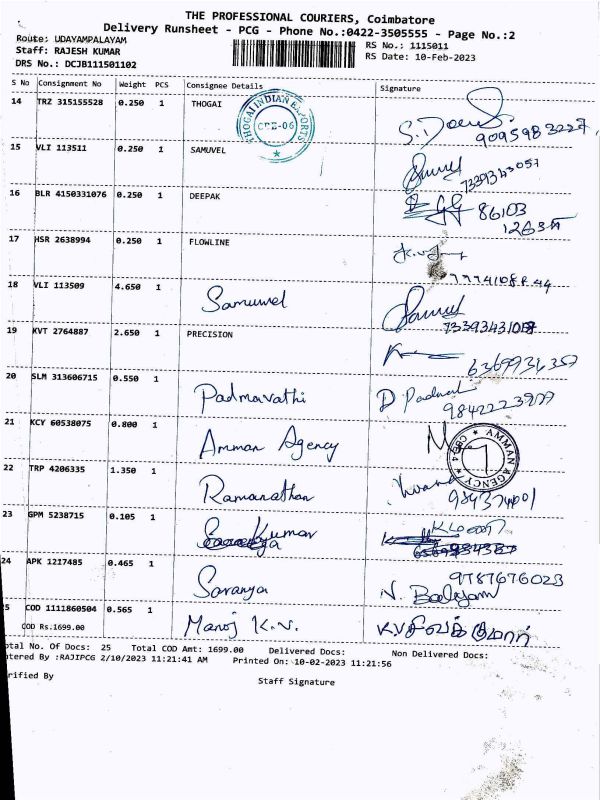 THE PROFESSIONAL COURIERS, Coimbatore
Delivery Runsheet - PCG - Phone No.:0422-3505555 - Page No.:2
Route: UDAYAMPALAYAM
RS No.: 1115011
Staff: RAJESH KUMAR
RS Date: 10-Feb-2023
DRS No.: DCJB111501102
S No Consignment No Weight PCS Consignee Details Signature
14 TRZ 315155528 0.250 1 THOGAI
THOGAI INDIAN EXPORTS
CBE-06
9095983227
15 VLI 113511 0.250 1 SAMUVEL
16 BLR 4150331076 0.250 1 DEEPAK
86103
17 HSR 2638994 0.250 1 FLOWLINE
18 VLI 113509 4.650 1 Samuvel
19 KVT 2764887 2.650 1 PRECISION
6369934357
20 SLM 313606715 0.550 1 Padmavathi
21 KCY 60538075 0.800 1 Amman Agency
AMMAN AGENCY
22 TRP 4206335 1.350 1 Ramanathan
23 GPM 5238715 0.105 1 Kumar
24 APK 1217485 0.465 1 Saranya
9787676023
25 COD 1111860504 0.565 1 Manoj K.V.
COD Rs.1699.00
Total No. Of Docs: 25 Total COD Amt: 1699.00 Delivered Docs: Non Delivered Docs:
ntered By :RAJIPCG 2/10/2023 11:21:41 AM Printed On: 10-02-2023 11:21:56
rified By
Staff Signature